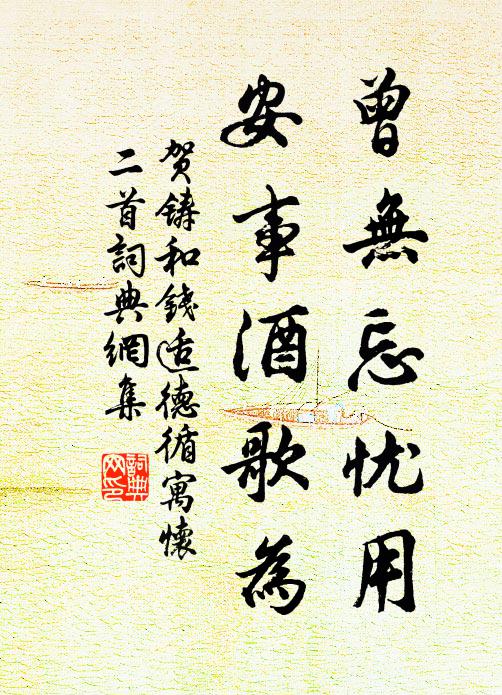 曾無忘忧用
安事酒歌為
贺鑄和錢适德循寓懷
二首詞典網集
詞典
网印